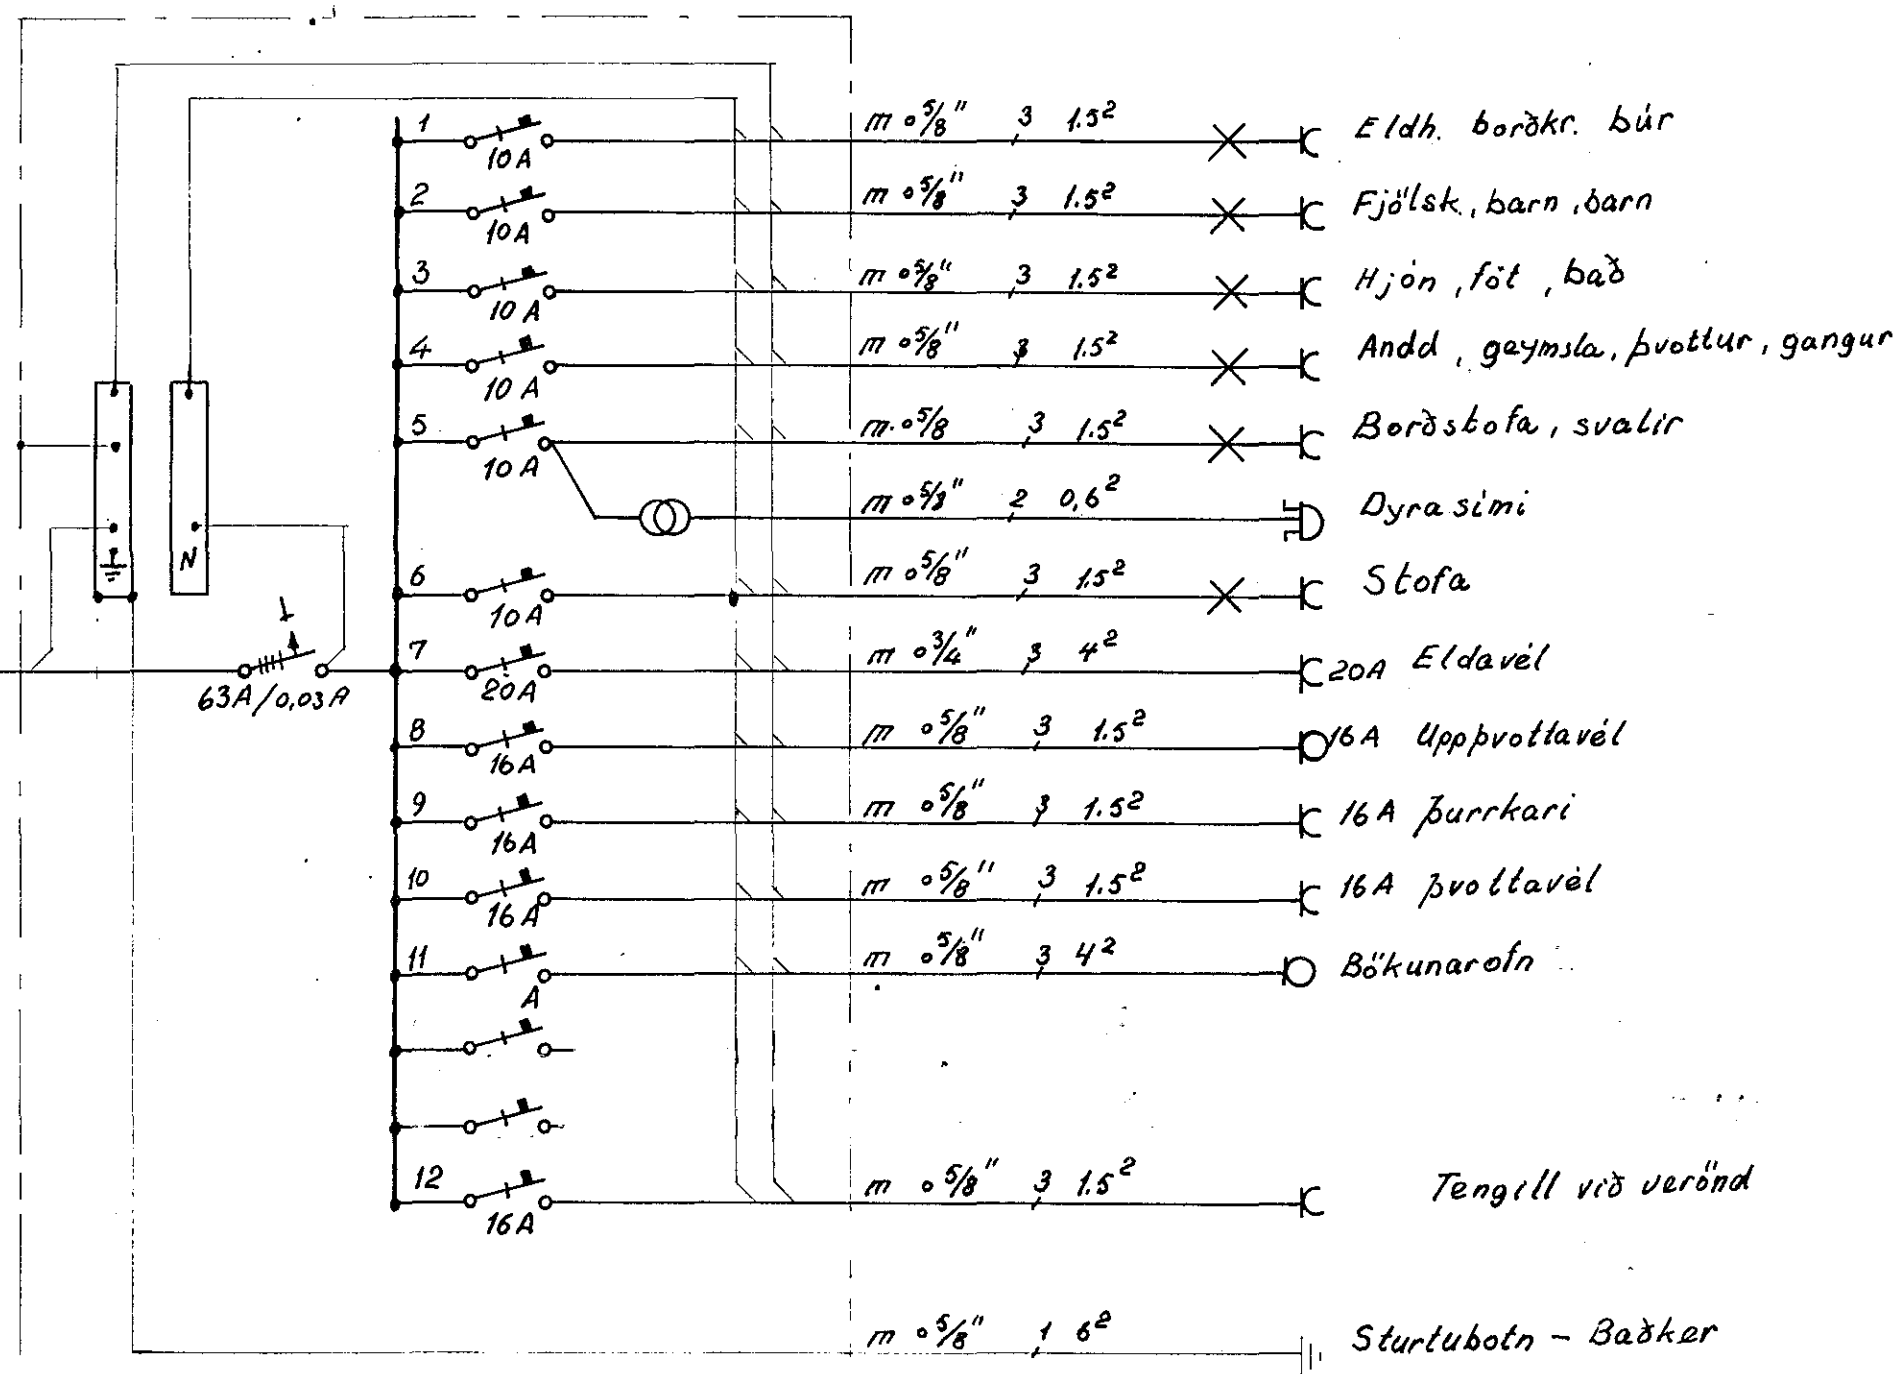 1 10A m ∘ 5/8" 3 1.5² Eldh. borðkr. búr
2 10A m ∘ 5/8" 3 1.5² Fjölsk., barn, barn
3 10A m ∘ 5/8" 3 1.5² Hjón, föt, bað
4 10A m ∘ 5/8" 3 1.5² Andd, geymsla, þvottur, gangur
5 10A m ∘ 5/8 3 1.5² Borðstofa, svalir
m ∘ 5/8" 2 0,6² Dyrasími
N
6 10A m ∘ 5/8" 3 1.5² Stofa
63A/0,03A
7 20A m ∘ 3/4" 3 4² 20A Eldavél
8 16A m ∘ 5/8" 3 1.5² 16A Uppþvottavél
9 16A m ∘ 5/8" 3 1.5² 16A þurrkari
10 16A m ∘ 5/8" 3 1.5² 16A þvottavél
11 A m ∘ 5/8" 3 4² Bökunarofn
12 16A m ∘ 5/8" 3 1.5² Tengill við verönd
m ∘ 5/8" 1 6² Sturtubotn - Baðker